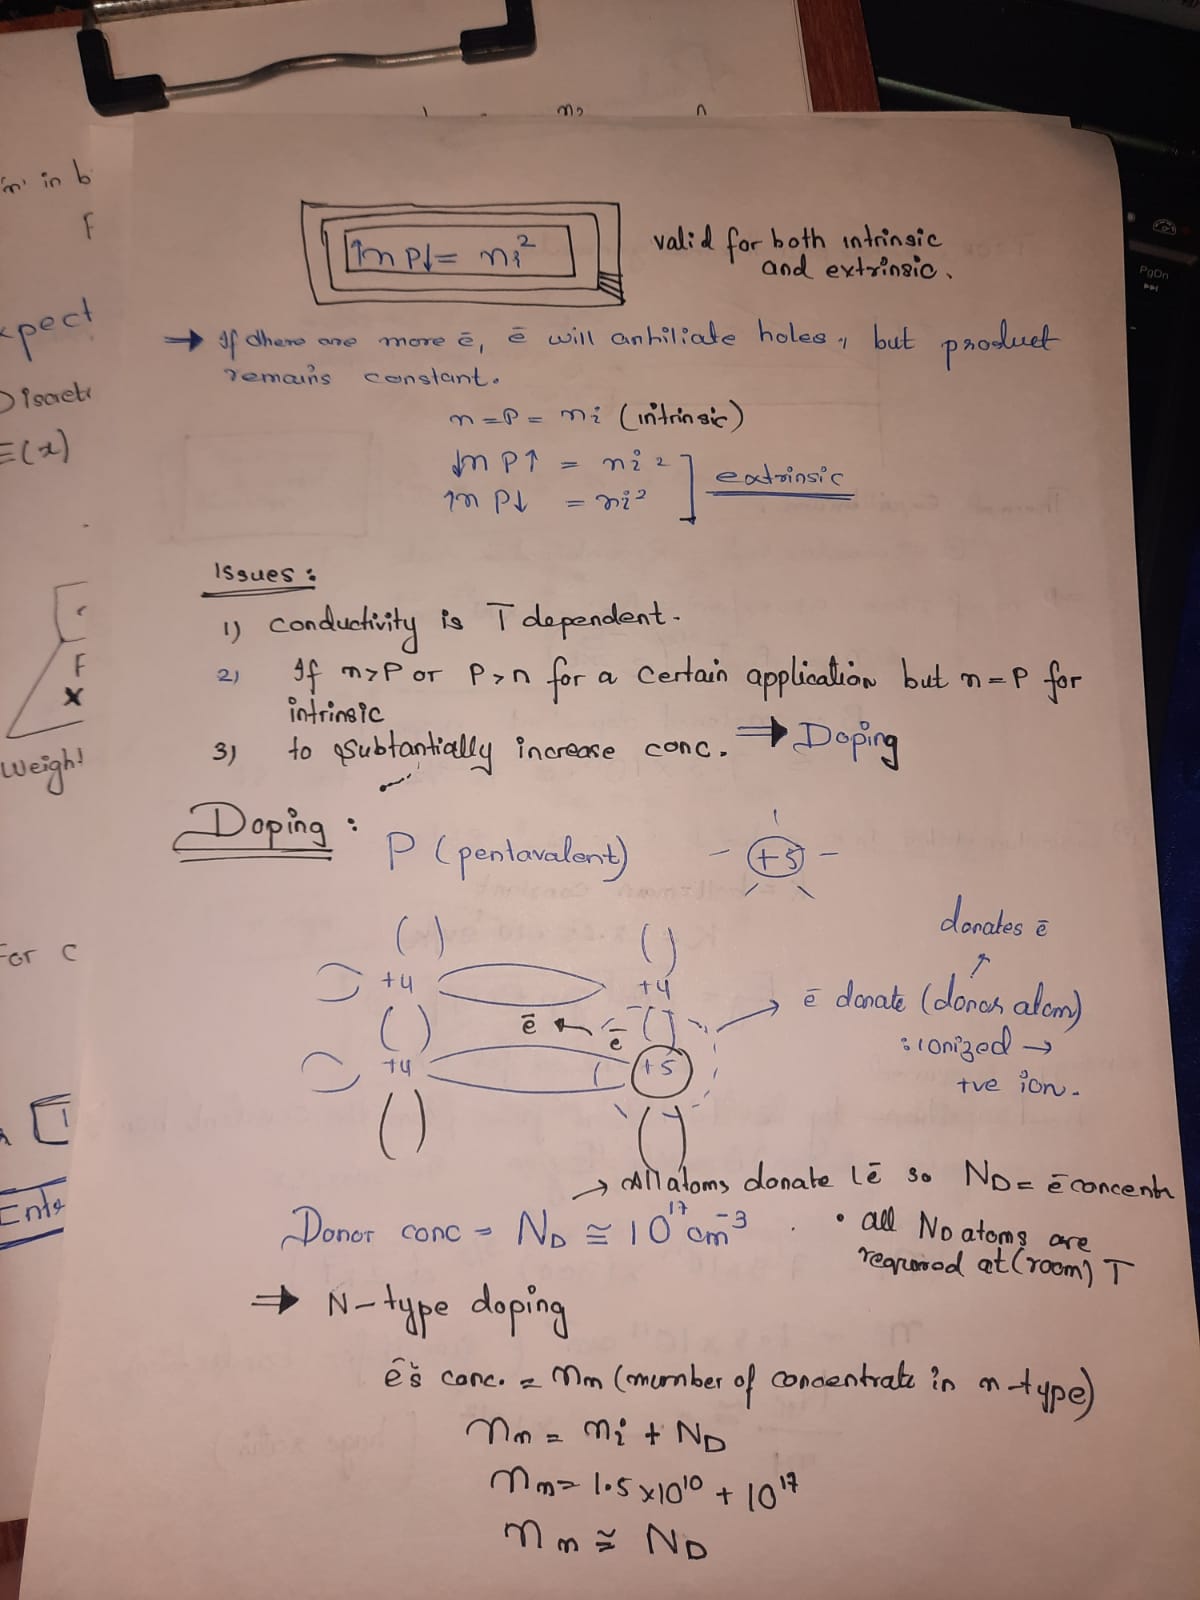 n2
'm' in b
F
xpect
Discrete
E(x)
F
x
Weight
For c
Ente
PgDn
↑n p↓ = ni²
valid for both intrinsic
and extrinsic.
→ If there are more ē, ē will anhiliate holes, but product
remains constant.
n = p = ni (intrinsic)
↓n p↑ = ni²
↑n p↓ = ni²
extrinsic
Issues :
1) conductivity is T dependent.
2) If n>p or p>n for a certain application but n = p for
intrinsic
3) to subtantially increase conc. ⇒ Doping
Doping :
P (pentavalent)
+5
donates ē
+4 +4
ē donate (donor atom)
ē ← ē
: ionized →
+4 +5
+ve ion.
→ All atoms donate 1ē so ND = ē concentr
Donor conc = ND ≅ 10¹⁷ cm⁻³
• all ND atoms are
at (room) T
⇒ N-type doping
ē's conc. = nn (number of concentrate in n-type)
nn = ni + ND
nn = 1.5 x 10¹⁰ + 10¹⁷
nn ≅ ND